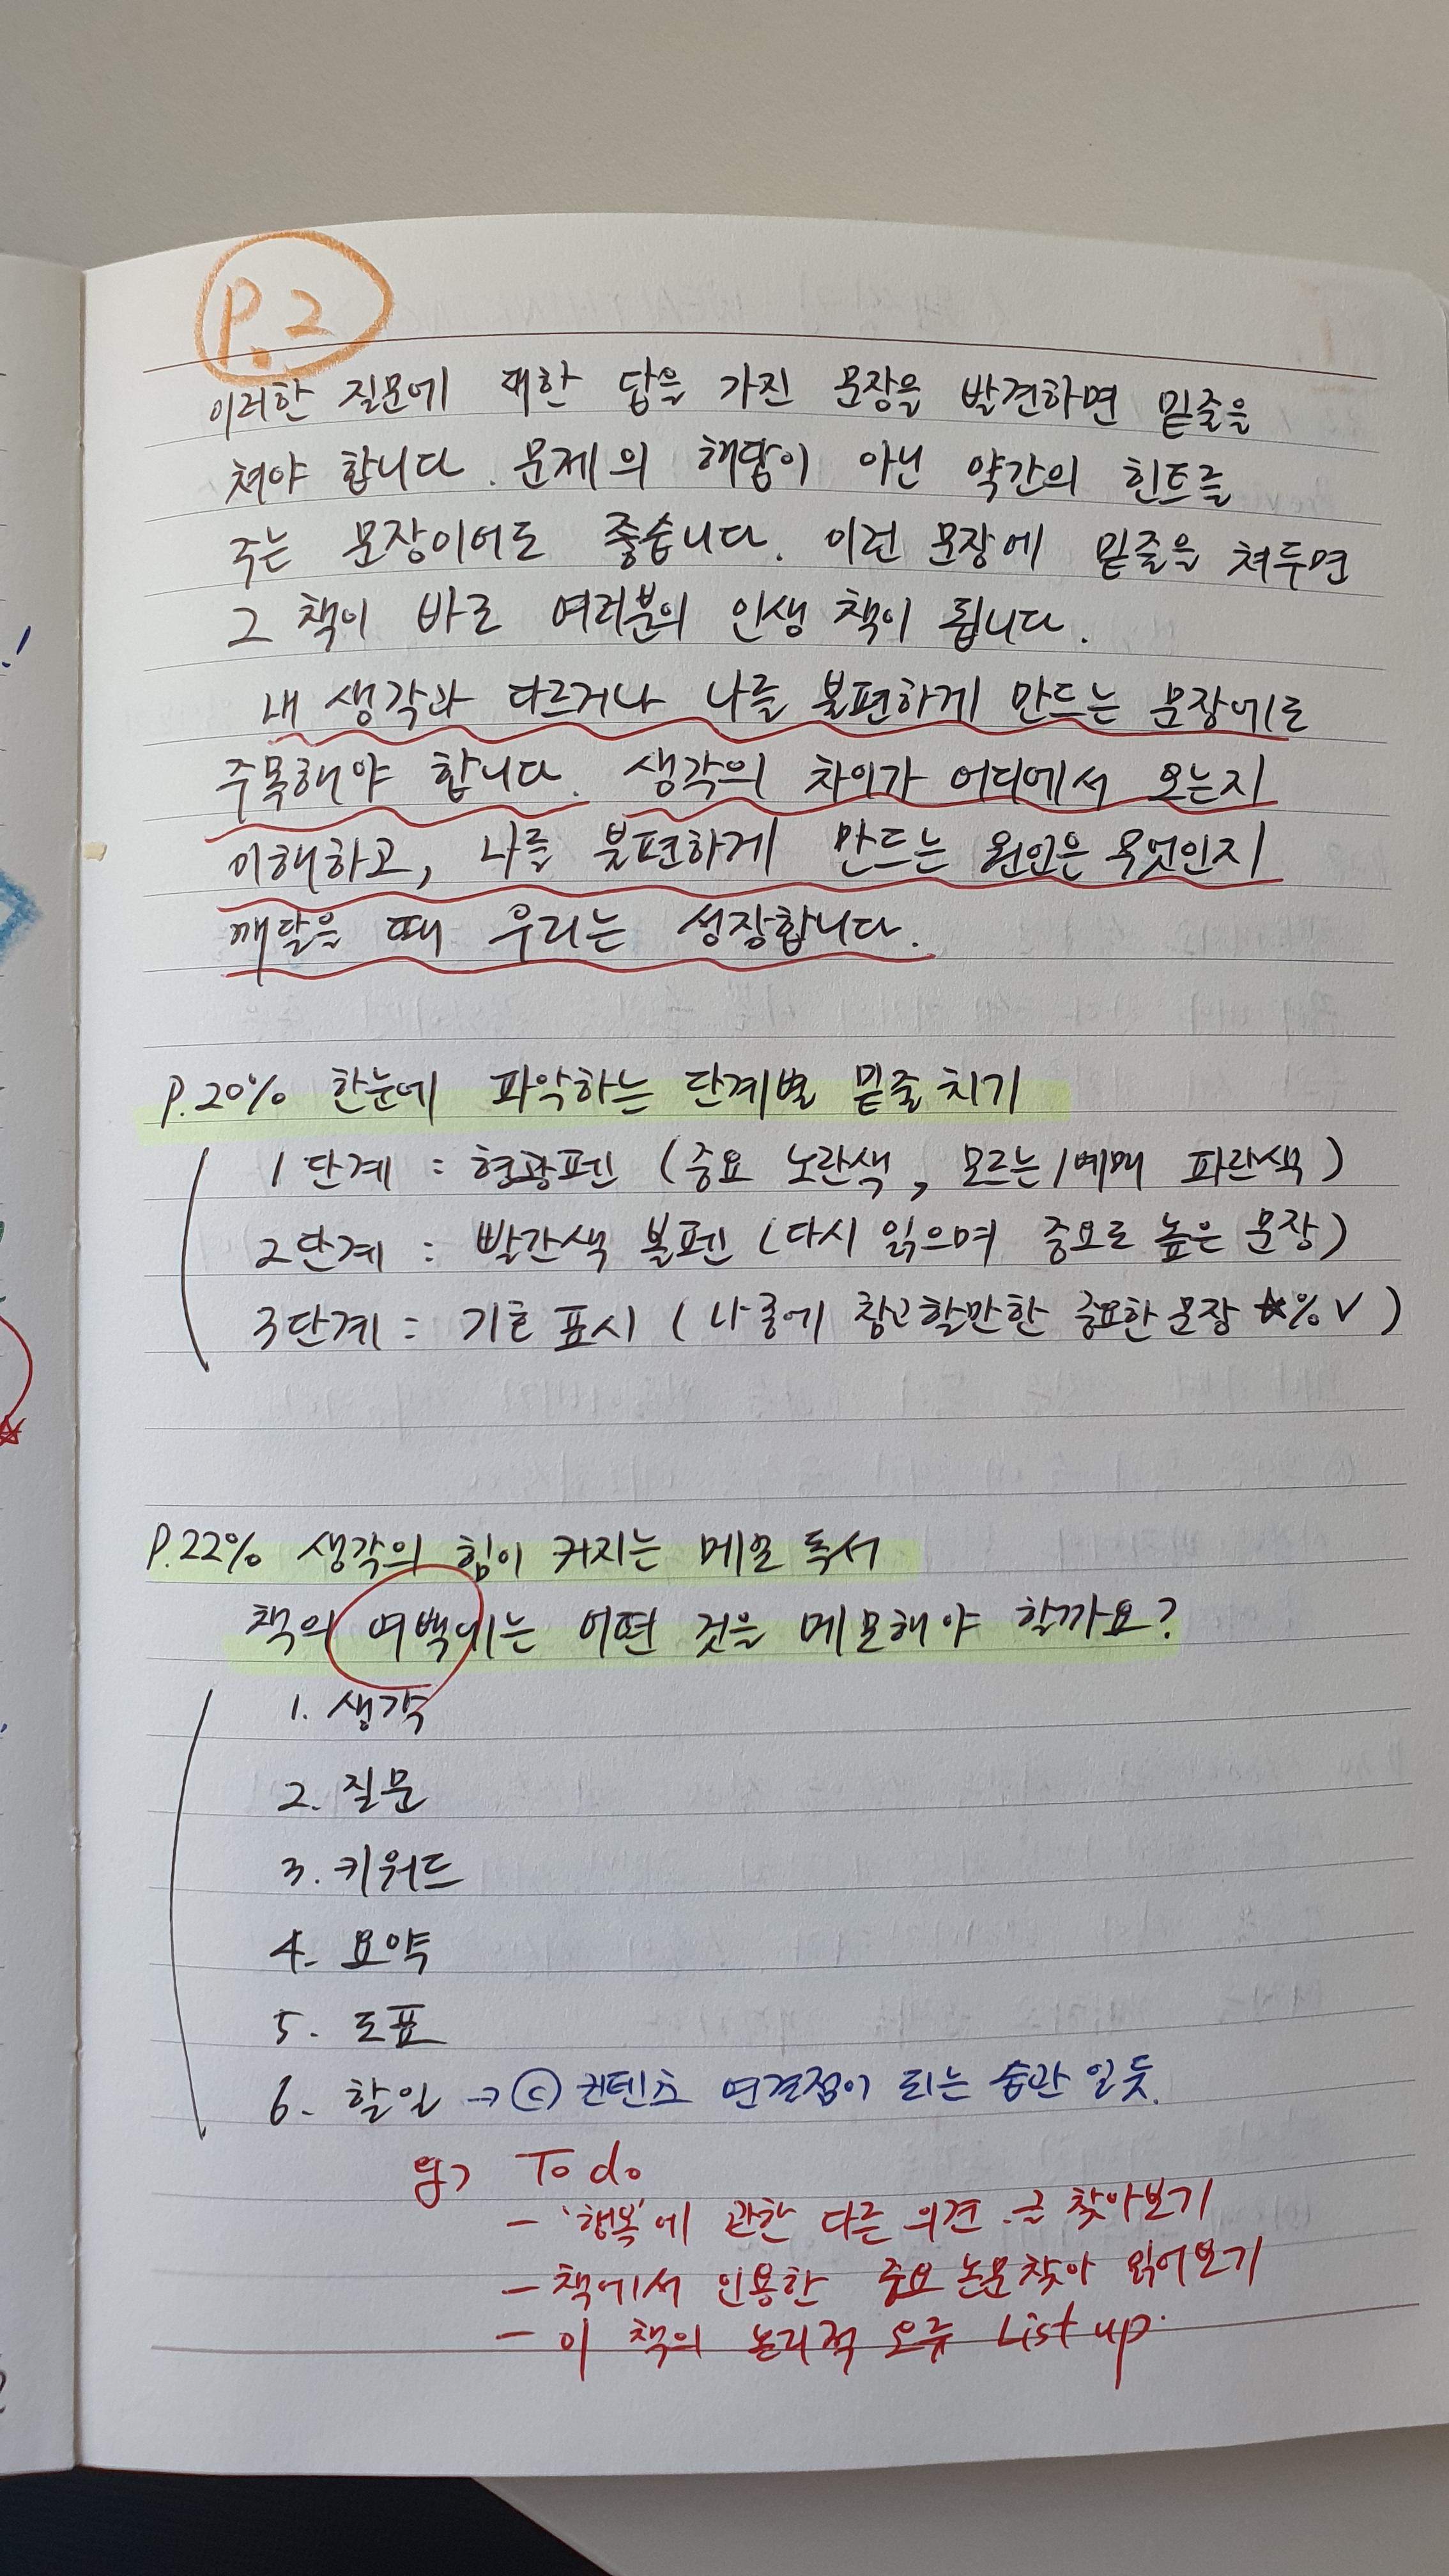 P.2
이러한 질문에 대한 답을 가진 문장을 발견하면 밑줄을
쳐야 합니다. 문제의 해답이 아닌 약간의 힌트를
주는 문장이어도 좋습니다. 이런 문장에 밑줄을 쳐두면
그 책이 바로 여러분의 인생 책이 됩니다.
내 생각과 다르거나 나를 불편하게 만드는 문장에도
주목해야 합니다. 생각의 차이가 어디에서 오는지
이해하고, 나를 불편하게 만드는 원인은 무엇인지
깨달을 때 우리는 성장합니다.
P.20% 한눈에 파악하는 단계별 밑줄 치기
1단계 : 형광펜 (중요 노란색, 모르는/예매 파란색)
2단계 : 빨간색 볼펜 (다시 읽으며 중요도 높은 문장)
3단계 : 기호 표시 (나중에 참고할만한 중요한 문장 ☆%V)
P.22% 생각의 힘이 커지는 메모 독서
책의 여백에는 어떤 것을 메모해야 할까요?
1. 생각
2. 질문
3. 키워드
4. 요약
5. 도표
6. 할일 → ⓒ 컨텐츠 연결점이 되는 습관 일듯.
eg> To do
- '행복'에 관한 다른 의견 글 찾아보기
- 책에서 인용한 중요 논문 찾아 읽어보기
- 이 책의 논리적 오류 List up.